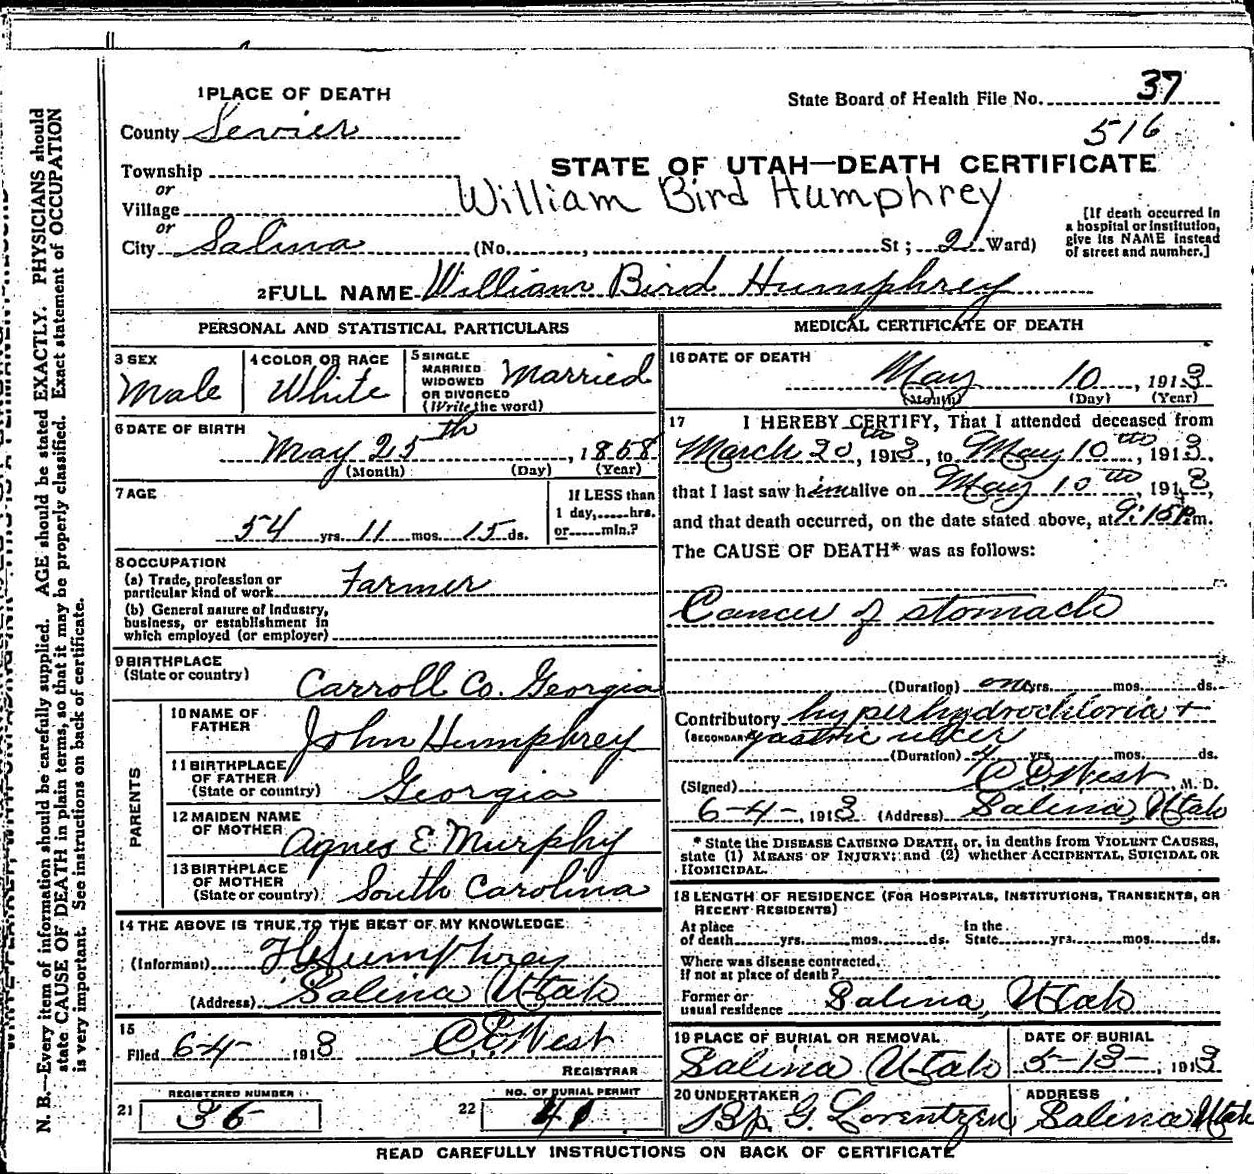 1 PLACE OF DEATH
State Board of Health File No. 37
County Sevier
516
Township
STATE OF UTAH—DEATH CERTIFICATE
or
William Bird Humphrey
Village
or
City Salina (No. , St ; 2 Ward)
[If death occurred in
a hospital or institution,
give its NAME instead
of street and number.]
2 FULL NAME William Bird Humphrey
PERSONAL AND STATISTICAL PARTICULARS
3 SEX
Male
4 COLOR OR RACE
White
5 SINGLE
MARRIED
WIDOWED
OR DIVORCED
(Write the word)
Married
6 DATE OF BIRTH
May 25th, 1858
(Month) (Day) (Year)
7 AGE
54 yrs. 11 mos. 15 ds.
If LESS than
1 day, hrs.
or min.?
8 OCCUPATION
(a) Trade, profession or
particular kind of work Farmer
(b) General nature of Industry,
business, or establishment in
which employed (or employer)
9 BIRTHPLACE
(State or country)
Carroll Co. Georgia
PARENTS
10 NAME OF
FATHER
John Humphrey
11 BIRTHPLACE
OF FATHER
(State or country)
Georgia
12 MAIDEN NAME
OF MOTHER
Agnes E Murphy
13 BIRTHPLACE
OF MOTHER
(State or country)
South Carolina
14 THE ABOVE IS TRUE TO THE BEST OF MY KNOWLEDGE
(Informant) Humphrey
(Address) Salina Utah
15
Filed 6-4- 1913 C E West
REGISTRAR
21 REGISTERED NUMBER
36
22 NO. OF BURIAL PERMIT
41
MEDICAL CERTIFICATE OF DEATH
16 DATE OF DEATH
May 10, 1913
(Month) (Day) (Year)
17 I HEREBY CERTIFY, That I attended deceased from
March 20th, 1913, to May 10th, 1913,
that I last saw him alive on May 10th, 1913,
and that death occurred, on the date stated above, at 9:15 P.m.
The CAUSE OF DEATH* was as follows:
Cancer of stomach
(Duration) one yrs. mos. ds.
Contributory hyperhydrochloria +
(SECONDARY) gastric ulcer
(Duration) 4 yrs. mos. ds.
(Signed) C E West, M. D.
6-4-, 1913 (Address) Salina, Utah
* State the DISEASE CAUSING DEATH, or, in deaths from VIOLENT CAUSES,
state (1) MEANS OF INJURY; and (2) whether ACCIDENTAL, SUICIDAL OR
HOMICIDAL.
18 LENGTH OF RESIDENCE (FOR HOSPITALS, INSTITUTIONS, TRANSIENTS, OR
RECENT RESIDENTS)
At place
of death yrs. mos. ds.
In the
State yrs. mos. ds.
Where was disease contracted,
if not at place of death?
Former or
usual residence Salina, Utah
19 PLACE OF BURIAL OR REMOVAL
Salina Utah
DATE OF BURIAL
5-13-, 1913
20 UNDERTAKER
Bp. G. Lorentzen
ADDRESS
Salina Utah
READ CAREFULLY INSTRUCTIONS ON BACK OF CERTIFICATE
N. B.—Every item of information should be carefully supplied. AGE should be stated EXACTLY. PHYSICIANS should
state CAUSE OF DEATH in plain terms, so that it may be properly classified. Exact statement of OCCUPATION
is very important. See instructions on back of certificate.